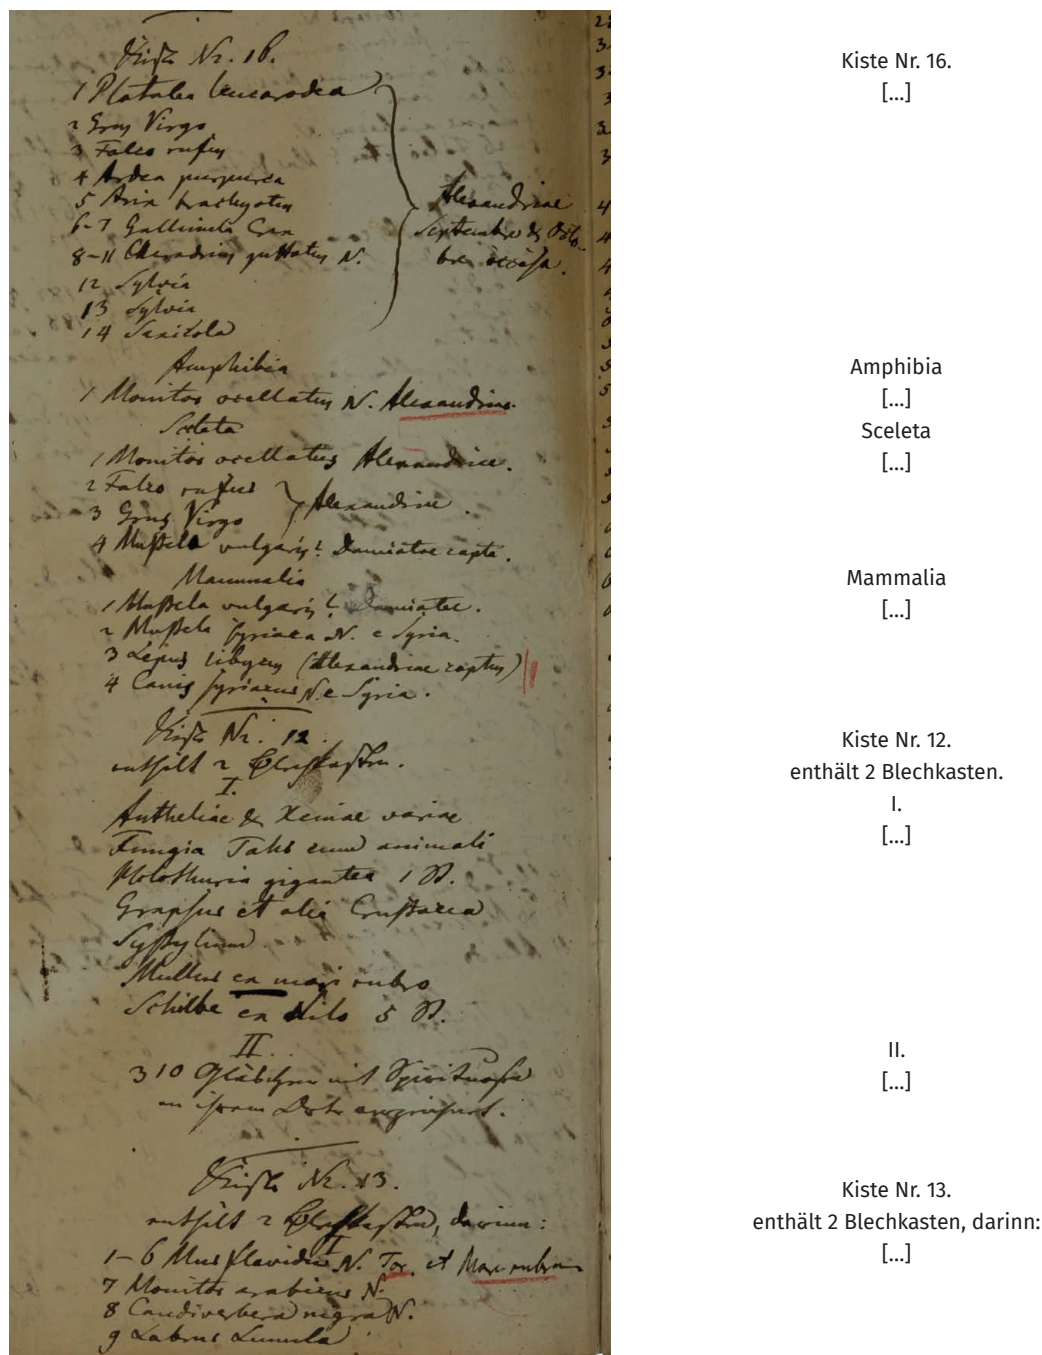 Kiste Nr. 16.
1 Platalea leucorodia
2 Grus Virgo
3 Falco rufus
4 Ardea purpurea
5 brachyotus
6-7 Gallinula Crex
8-11 Charadrius guttatus N.
12 Sylvia
13 Sylvia
14 Saxicola
Alexandriae
Septembre & Octo-
bre occisa.
Amphibia
1 Monitor ocellatus N. Alexandriae.
Sceleta
1 Monitor ocellatus Alexandriae.
2 Falco rufus
3 Grus Virgo
Alexandriae.
4 Mustela vulgaris? Damiatae capta.
Mammalia
1 Mustela vulgaris? Damiatae.
2 Mustela syriaca N. e Syria.
3 Lepus libycus (Alexandriae captus)
4 Canis syriacus N. e Syria.
Kiste Nr. 12.
enthält 2 Blechkasten.
I.
Antheliae & Xeniae variae
Fungia cum animali
Holothuria gigantea 1 St.
Grapsus et alia Crustacea
Mullus ex mari rubro
Schilbe ex Nilo 5 St.
II.
310 Gläschen mit Spirituosa
an ihrem Orte
Kiste Nr. 13.
enthält 2 Blechkasten, darinn:
I
1-6 Mus flavidus N. Tor et Mare rubrum
7 Monitor arabicus N.
8 Caudiverbera nigra N.
9 Labrus Lunula
Kiste Nr. 16.
[...]
Amphibia
[...]
Sceleta
[...]
Mammalia
[...]
Kiste Nr. 12.
enthält 2 Blechkasten.
I.
[...]
II.
[...]
Kiste Nr. 13.
enthält 2 Blechkasten, darinn:
[...]